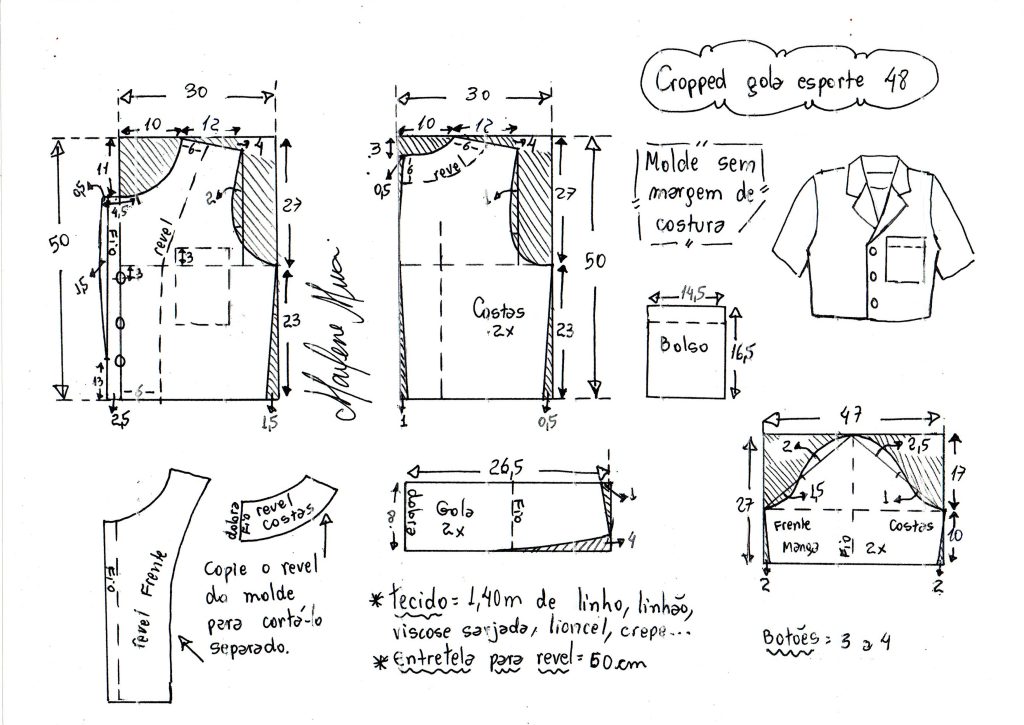 Cropped gola esporte 48
30
10 12
4
6
11
50
0,5
4,5
Fio
revel
2
27
3
3
1,5
23
13
6
2,5
1,5
Marlene Mukai
30
10 12
4
3
6
revel
6
0,5
1
27
50
Costas
2x
23
1
0,5
Molde sem
margem de
costura
14,5
Bolso
16,5
47
2
2,5
17
27
1,5
1
Frente
Costas
Manga
Fio
2x
10
2
2
26,5
8
dobra
Gola
2x
Fio
1
4
Fio
revel Frente
dobra
Fio
revel
costas
Copie o revel
do molde
para cortá-lo
separado.
* Tecido = 1,40m de linho, linhão,
viscose sarjada, liocel, crepe...
* Entretela para revel = 50cm
Botões = 3 a 4